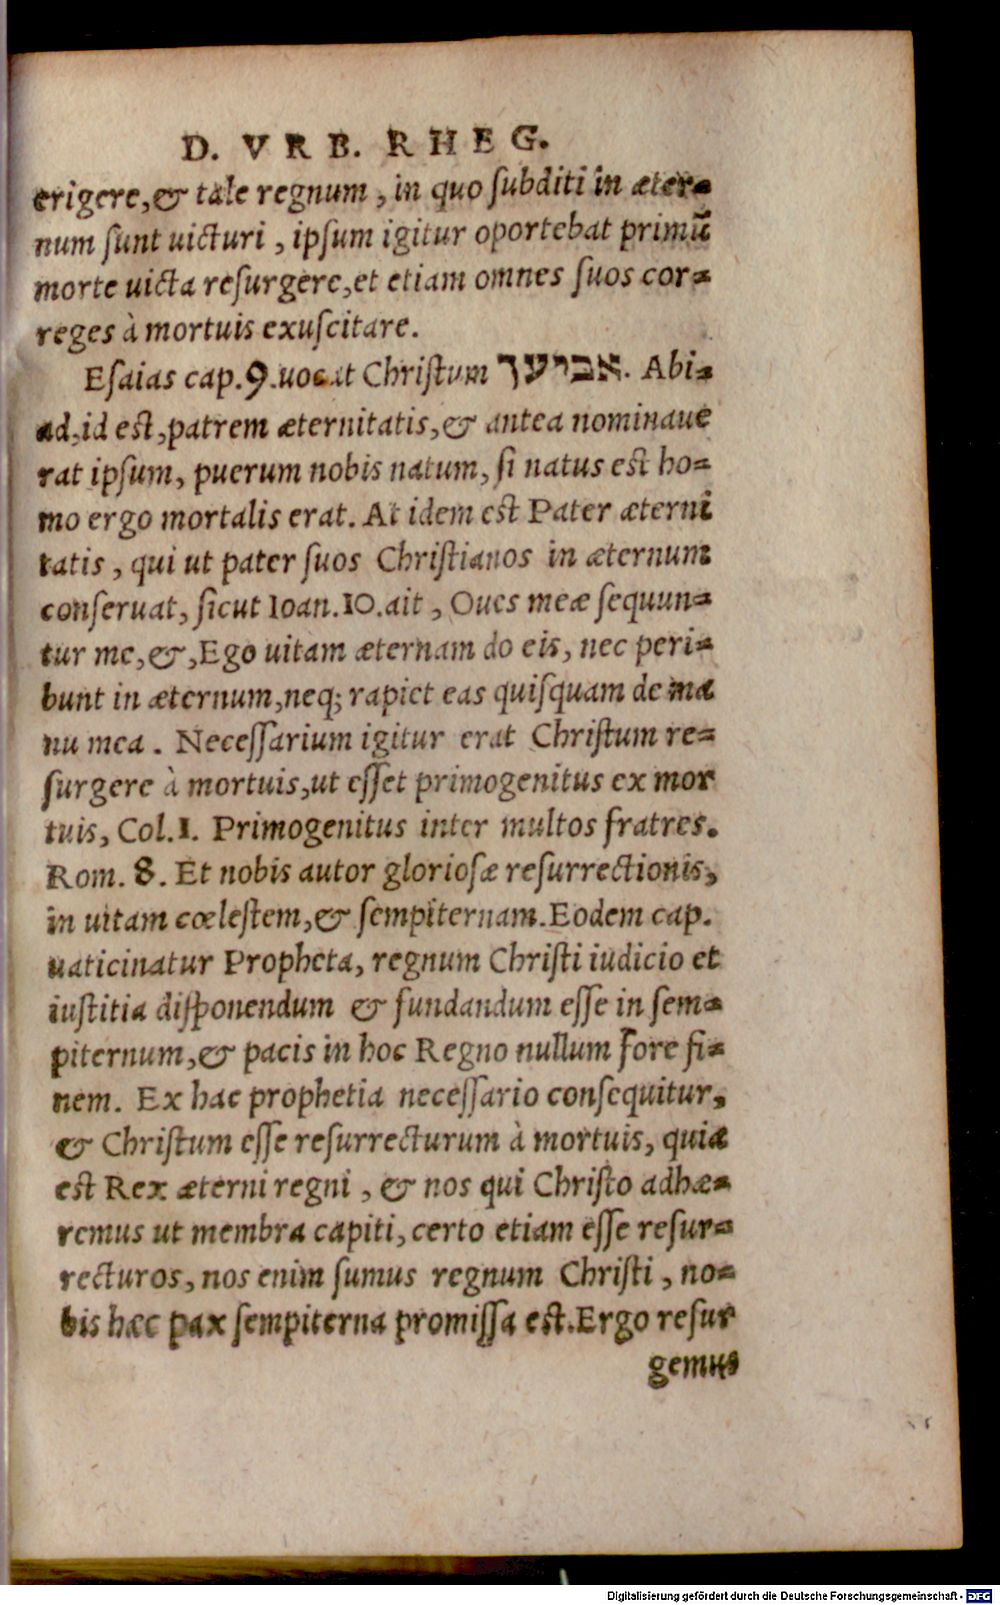 D. VRB. RHEG.
erigere,& tale regnum, in quo ſubditi in æter-
num ſunt uicturi, ipſum igitur oportebat primū
morte uicta reſurgere,et etiam omnes ſuos cor-
reges à mortuis exuſcitare.
Eſaias cap.9.uocat Chriſtum אביעך. Abi-
ad,id eſt,patrem æternitatis,& antea nominaue
rat ipſum, puerum nobis natum, ſi natus eſt ho-
mo ergo mortalis erat. At idem eſt Pater æterni
tatis, qui ut pater ſuos Chriſtianos in æternum
conſeruat, ſicut Ioan.10.ait, Oues meæ ſequun-
tur me,&,Ego uitam æternam do eis, nec peri-
bunt in æternum,neq; rapiet eas quiſquam de ma
nu mea. Neceſſarium igitur erat Chriſtum re-
ſurgere à mortuis,ut eſſet primogenitus ex mor
tuis, Col.1. Primogenitus inter multos fratres.
Rom. 8. Et nobis autor glorioſæ reſurrectionis,
in uitam cœleſtem,& ſempiternam.Eodem cap.
uaticinatur Propheta, regnum Chriſti iudicio et
iuſtitia diſponendum & fundandum eſſe in ſem-
piternum,& pacis in hoc Regno nullum fore fi-
nem. Ex hac prophetia neceſſario conſequitur,
& Chriſtum eſſe reſurrecturum à mortuis, quia
eſt Rex æterni regni, & nos qui Chriſto adhæ-
remus ut membra capiti, certo etiam eſſe reſur-
recturos, nos enim ſumus regnum Chriſti, no-
bis hæc pax ſempiterna promiſſa eſt.Ergo reſur
gemus
Digitalisierung gefördert durch die Deutsche Forschungsgemeinschaft - DFG